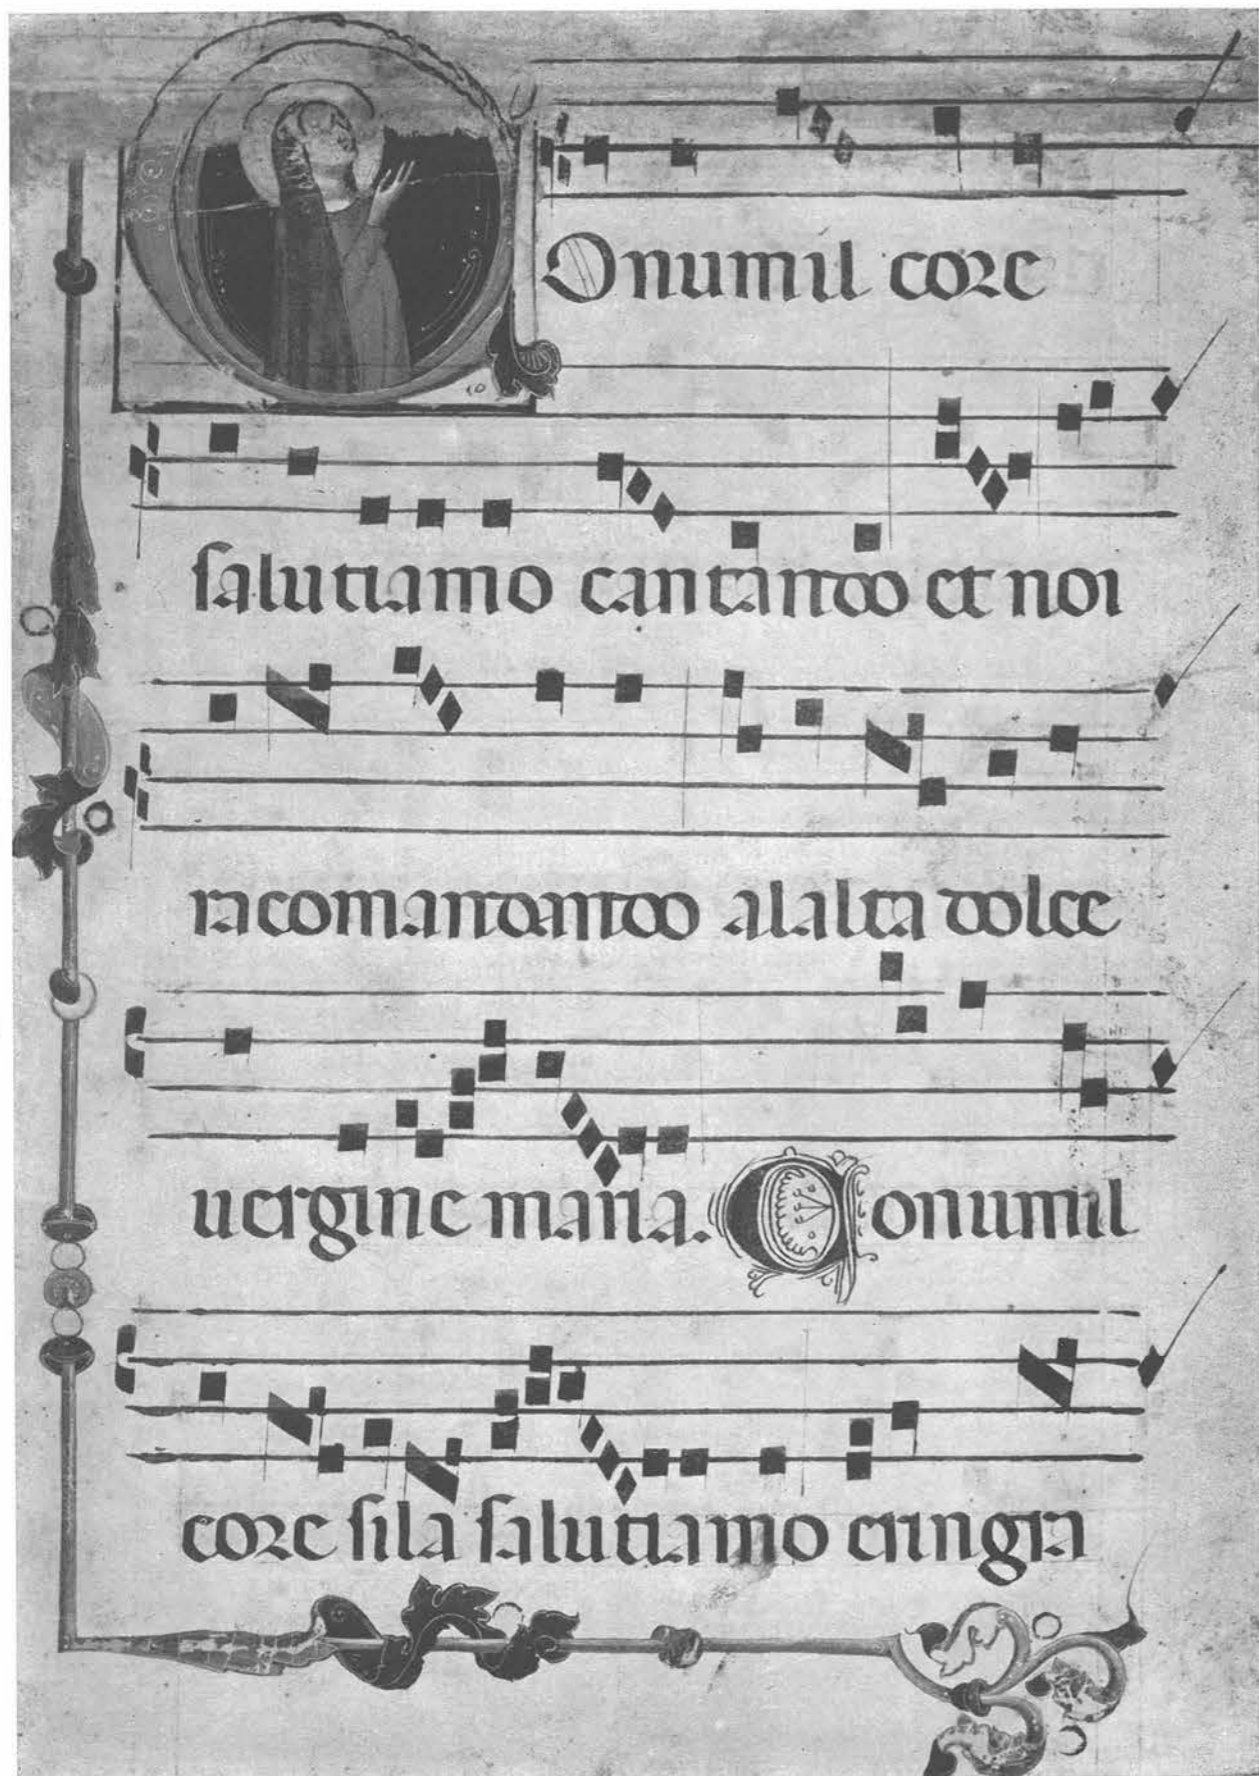 COnumil core
salutiamo cantando et noi
racomandando alalta dolce
uergine maria. Conumil
core sila salutiamo etingra